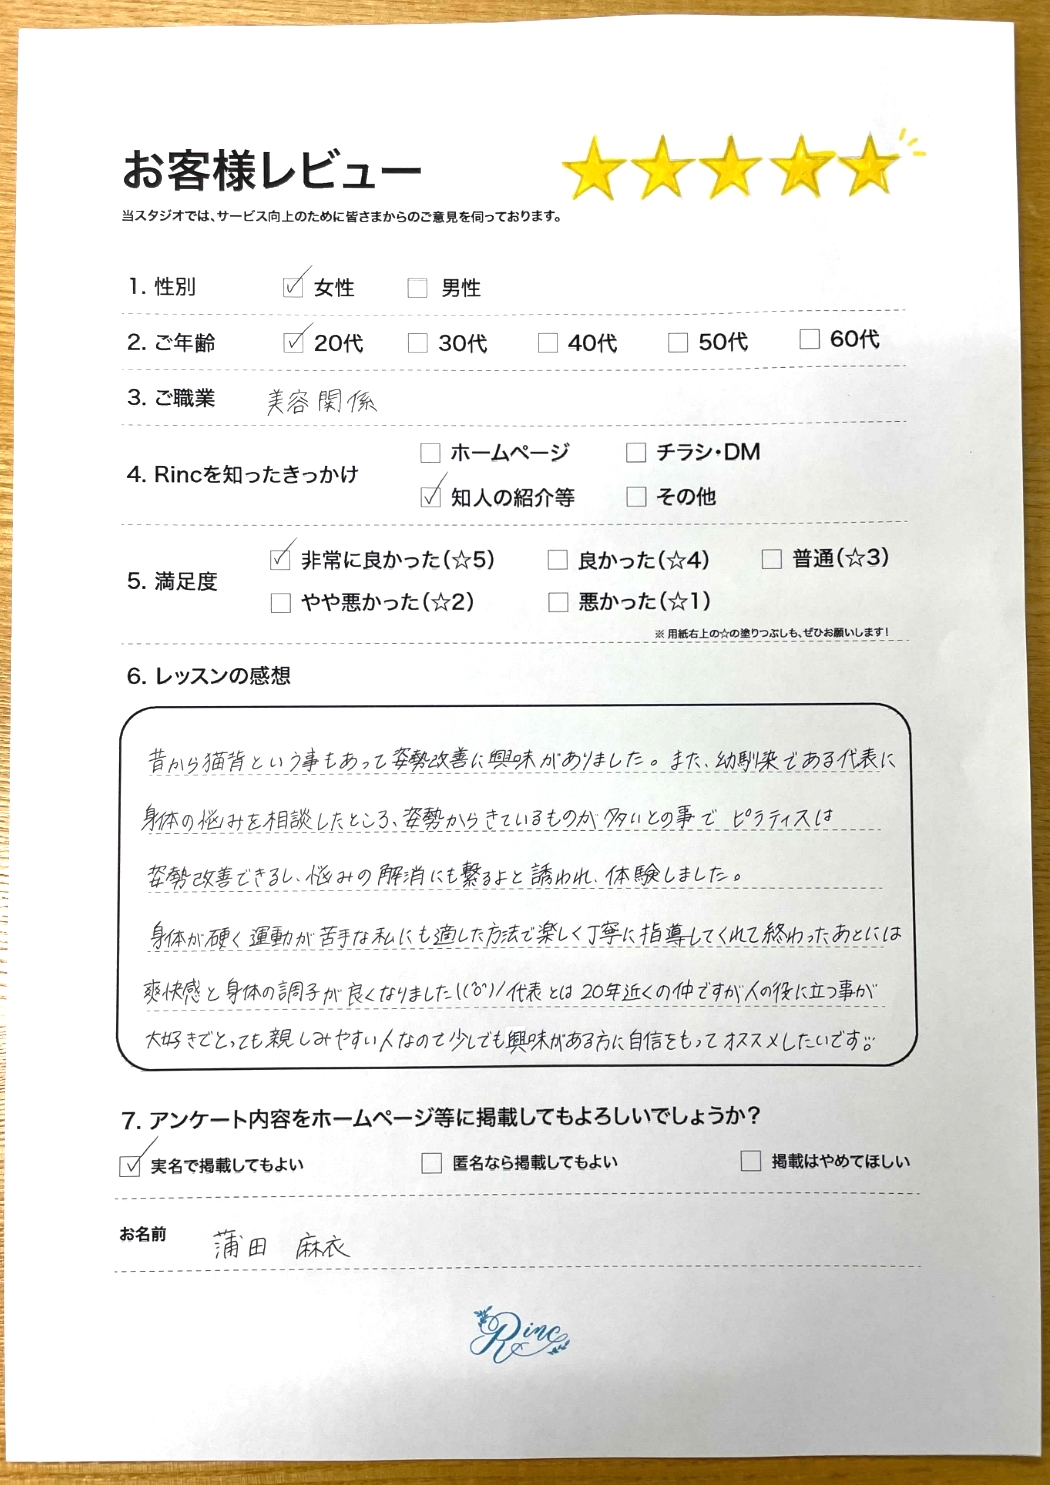 お客様レビュー
当スタジオでは、サービス向上のために皆さまからのご意見を伺っております。
1. 性別 ☑ 女性 ☐ 男性
2. ご年齢 ☑ 20代 ☐ 30代 ☐ 40代 ☐ 50代 ☐ 60代
3. ご職業 美容関係
4. Rincを知ったきっかけ
☐ ホームページ ☐ チラシ・DM
☑ 知人の紹介等 ☐ その他
5. 満足度
☑ 非常に良かった(☆5) ☐ 良かった(☆4) ☐ 普通(☆3)
☐ やや悪かった(☆2) ☐ 悪かった(☆1)
※ 用紙右上の☆の塗りつぶしも、ぜひお願いします!
6. レッスンの感想
昔から猫背という事もあって姿勢改善に興味がありました。また、幼馴染である代表に
身体の悩みを相談したところ、姿勢からきているものが多いとの事で ピラティスは
姿勢改善できるし、悩みの解消にも繋るよと誘われ、体験しました。
身体が硬く運動が苦手な私にも適した方法で楽しく丁寧に指導してくれて終わったあとには
爽快感と身体の調子が良くなりました\(^o^)/代表とは20年近くの仲ですが人の役に立つ事が
大好きでとっても親しみやすい人なので少しでも興味がある方に自信をもってオススメしたいです
7. アンケート内容をホームページ等に掲載してもよろしいでしょうか?
☑ 実名で掲載してもよい ☐ 匿名なら掲載してもよい ☐ 掲載はやめてほしい
お名前 蒲田 麻衣
Rinc